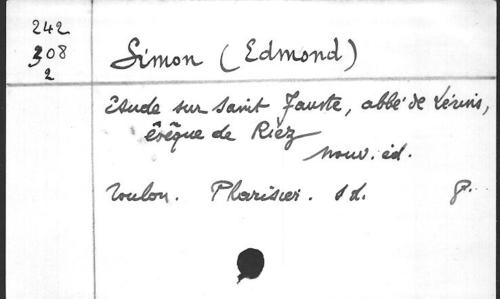 242
308
2
Simon (Edmond)
Etude sur Saint Fauste, abbé de Lérins,
évêque de Riez
nouv. éd.
Toulon. Pharisier. s d. 8°.